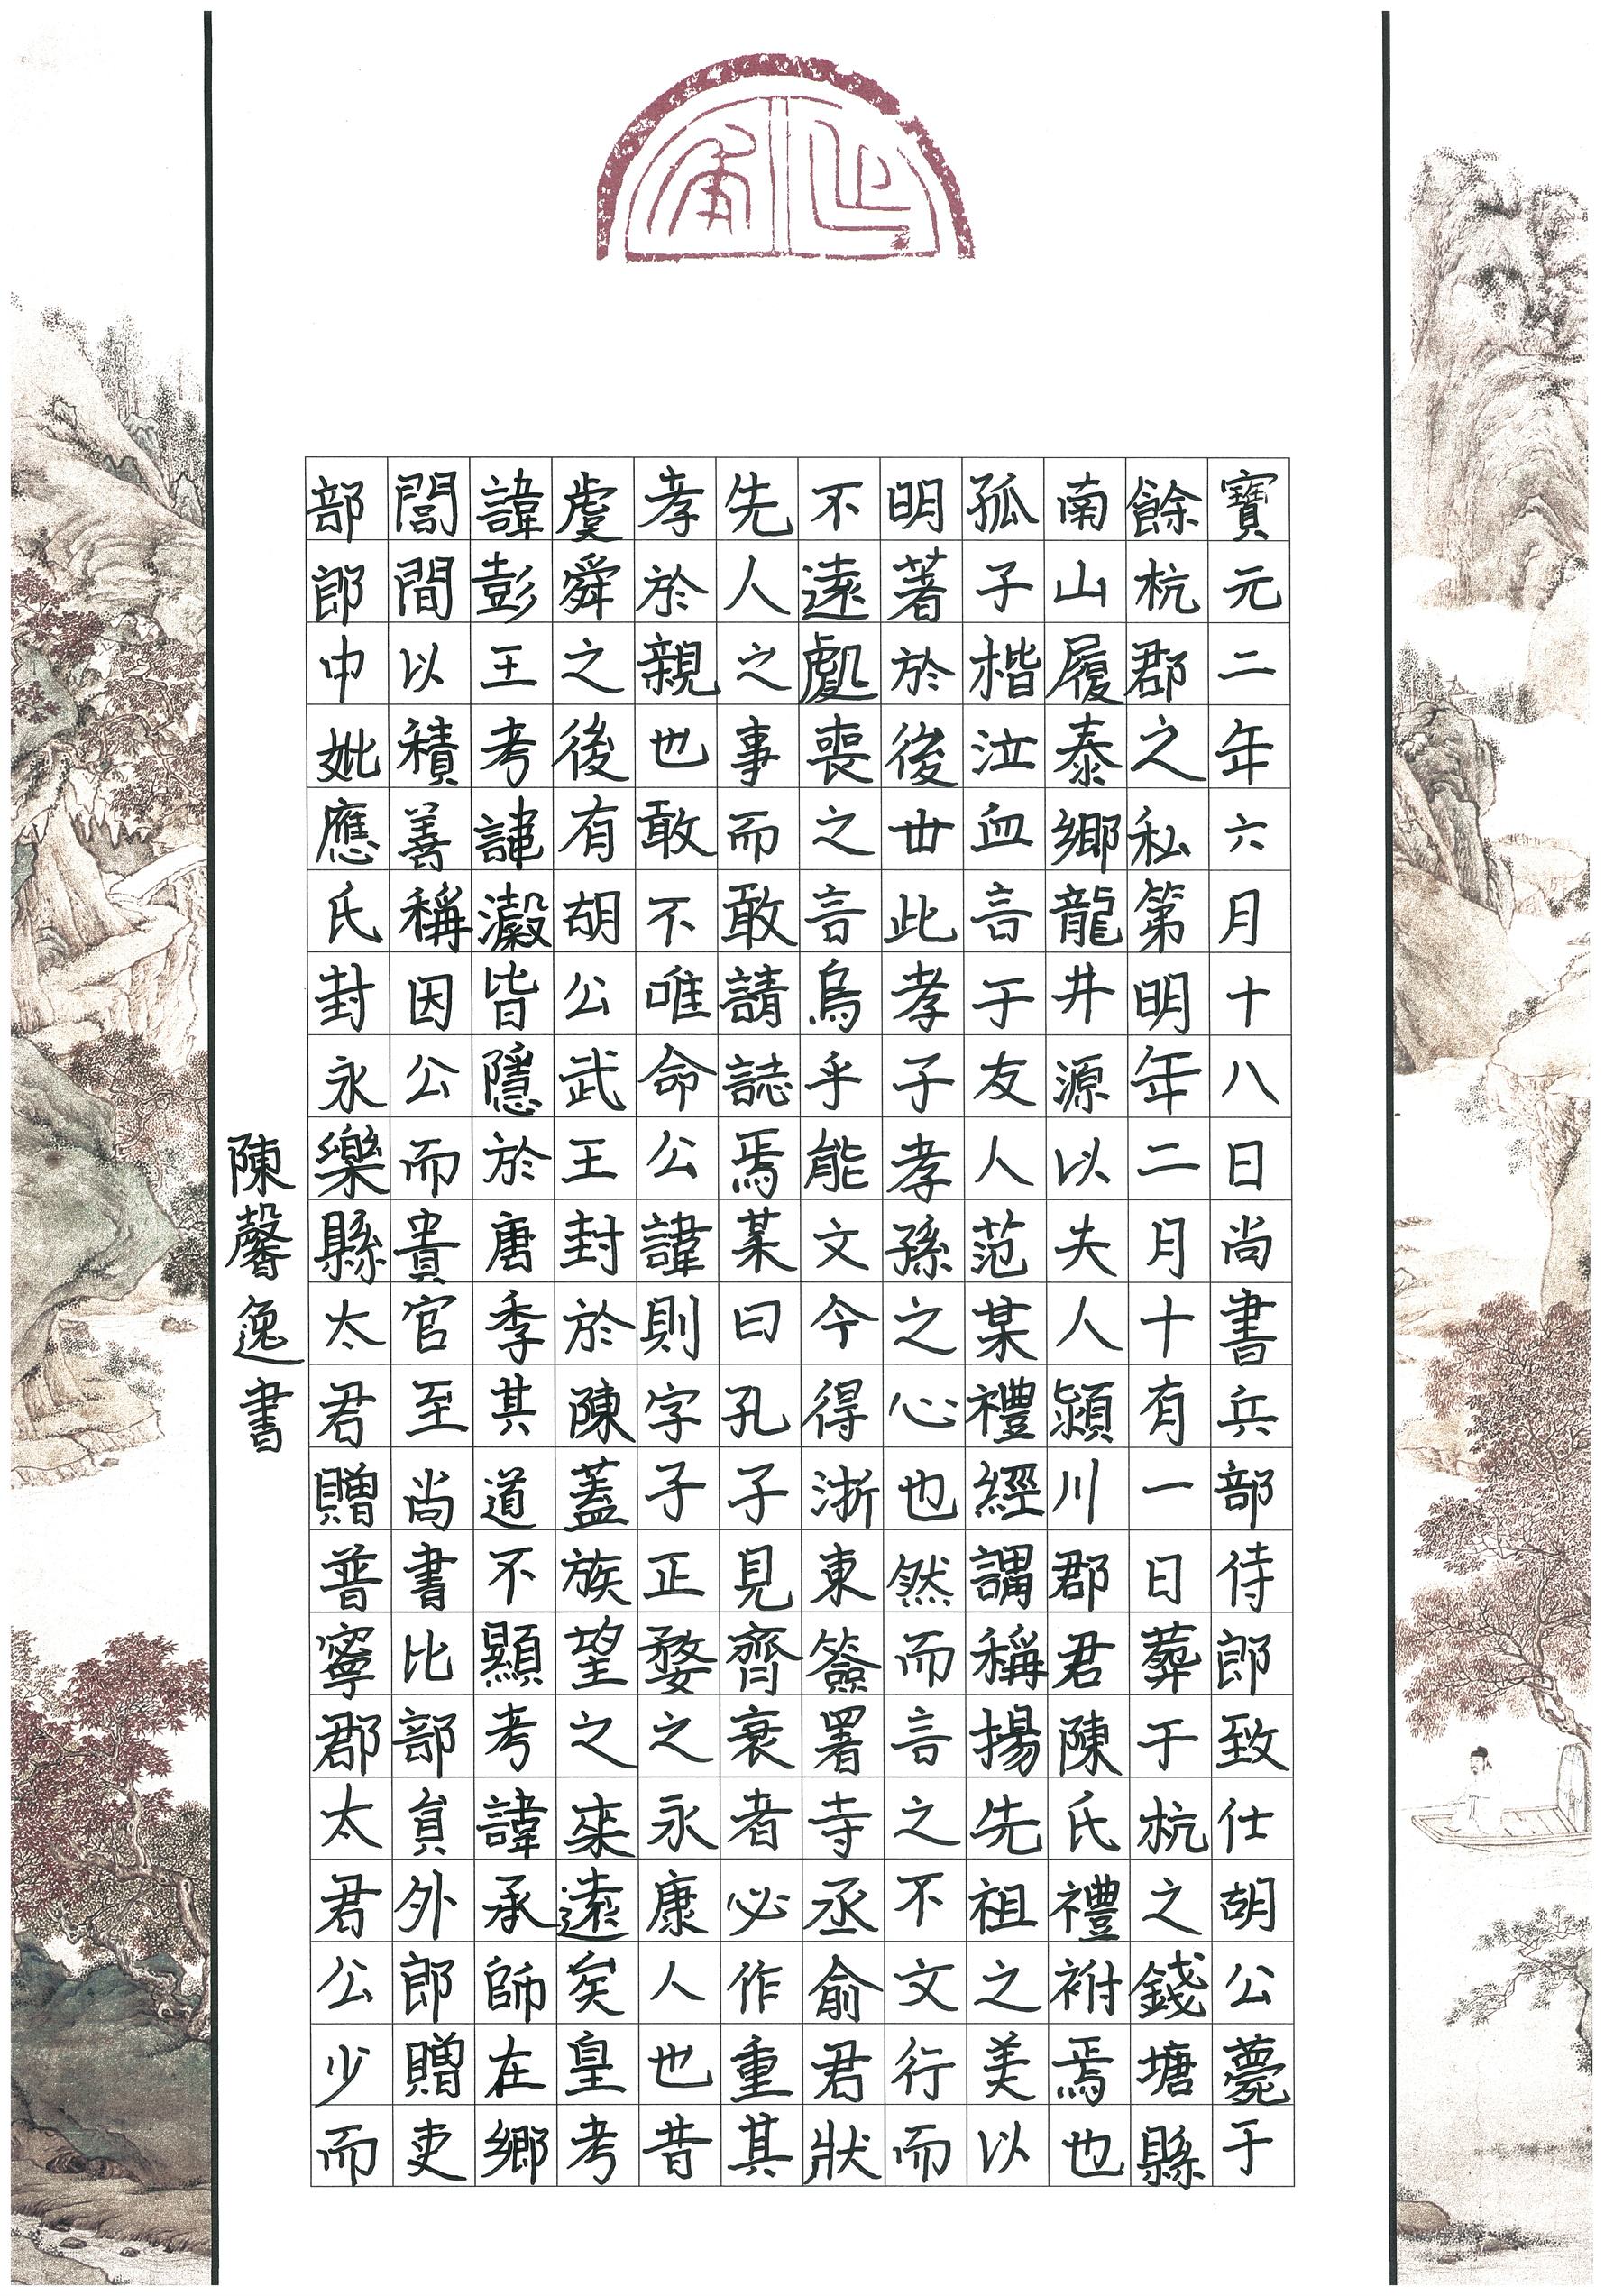 寶元二年六月十八日尚書兵部侍郎致仕胡公薨于
餘杭郡之私第明年二月十有一日葬于杭之錢塘縣
南山履泰鄉龍井源以夫人潁川郡君陳氏禮祔焉也
孤子楷泣血言于友人范某禮經謂稱揚先祖之美以
明著於後世此孝子孝孫之心也然而言之不文行而
不遠處喪之言烏乎能文今得浙東簽署寺丞俞君狀
先人之事而敢請誌焉某曰孔子見齊衰者必作重其
孝於親也敢不唯命公諱則字子正婺之永康人也昔
虞舜之後有胡公武王封於陳蓋族望之來遠矣皇考
諱彭王考諱瀔皆隱於唐季其道不顯考諱承師在鄉
閭間以積善稱因公而貴官至尚書比部員外郎贈吏
部郎中妣應氏封永樂縣太君贈普寧郡太君公少而
陳馨逸書